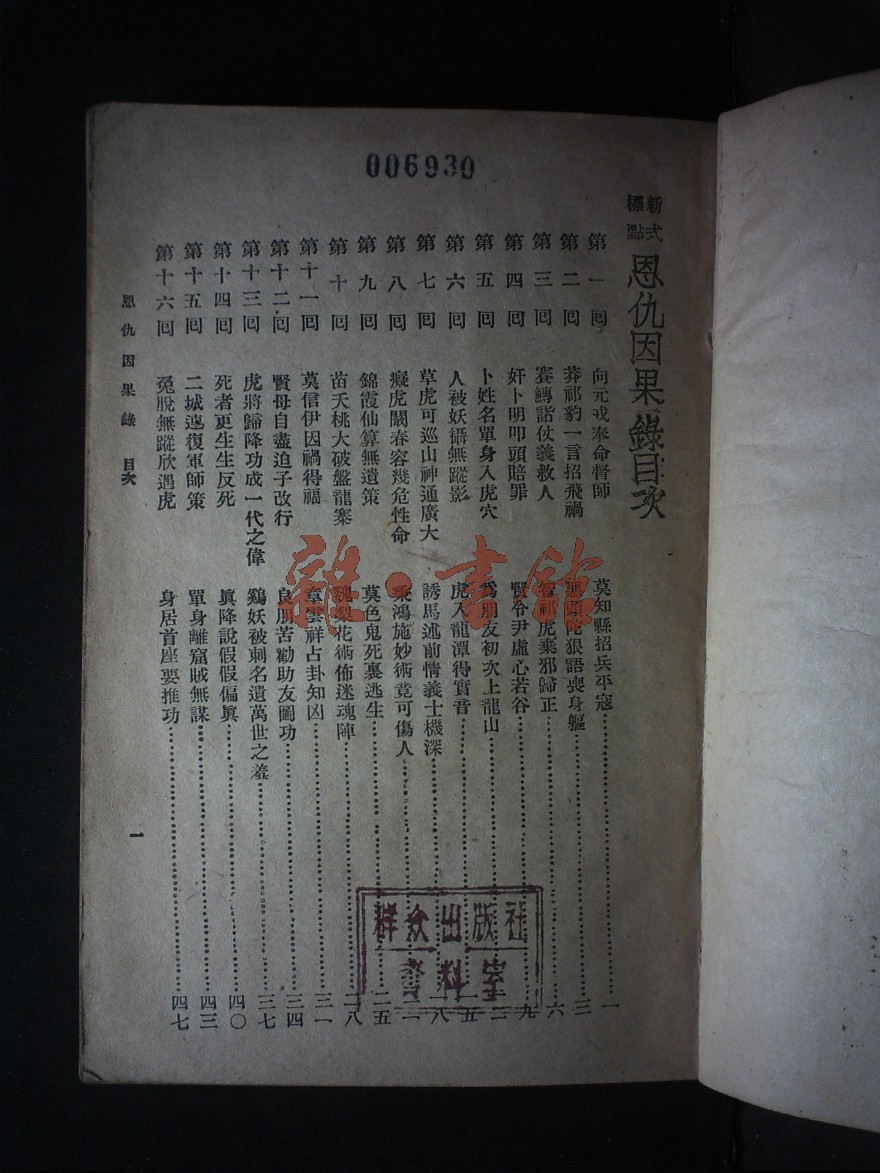 006939
新式標點 恩仇因果錄目次
第一回 向元戎奉命督師 莫知縣招兵平寇 一
第二回 莽祁豹一言招飛禍 頭陀狠語喪身軀 三
第三回 賽鱄諸仗義救人 祁虎棄邪歸正 六
第四回 奸卜明叩頭賠罪 賢令尹虛心若谷 九
第五回 卜姓名單身入虎穴 爲朋友初次上龍山
第六回 人被妖攝無蹤影 虎入龍潭得實音
第七回 草虎可巡山神通廣大 誘馬述前情義士機深
第八回 癡虎闞春容幾危性命 乘鴻施妙術竟可傷人
第九回 錦霞仙算無遺策 莫色鬼死裏逃生 二五
第十回 苗夭桃大破盤龍寨 魏梨花術佈迷魂陣 二八
第十一回 莫信伊因禍得福 章雲祥占卦知凶 三一
第十二回 賢母自盡追子改行 良朋苦勸助友圖功 三四
第十三回 虎將歸降功成一代之偉 鷄妖被刺名遺萬世之羞 三七
第十四回 死者更生生反死 眞降說假假偏眞 四〇
第十五回 二城遞復軍師策 單身離窟賊無謀 四三
第十六回 冤脫無蹤欣遇虎 身居首座要推功 四七
恩仇因果錄 目次
一
雜·書館
群众出版社
資料室